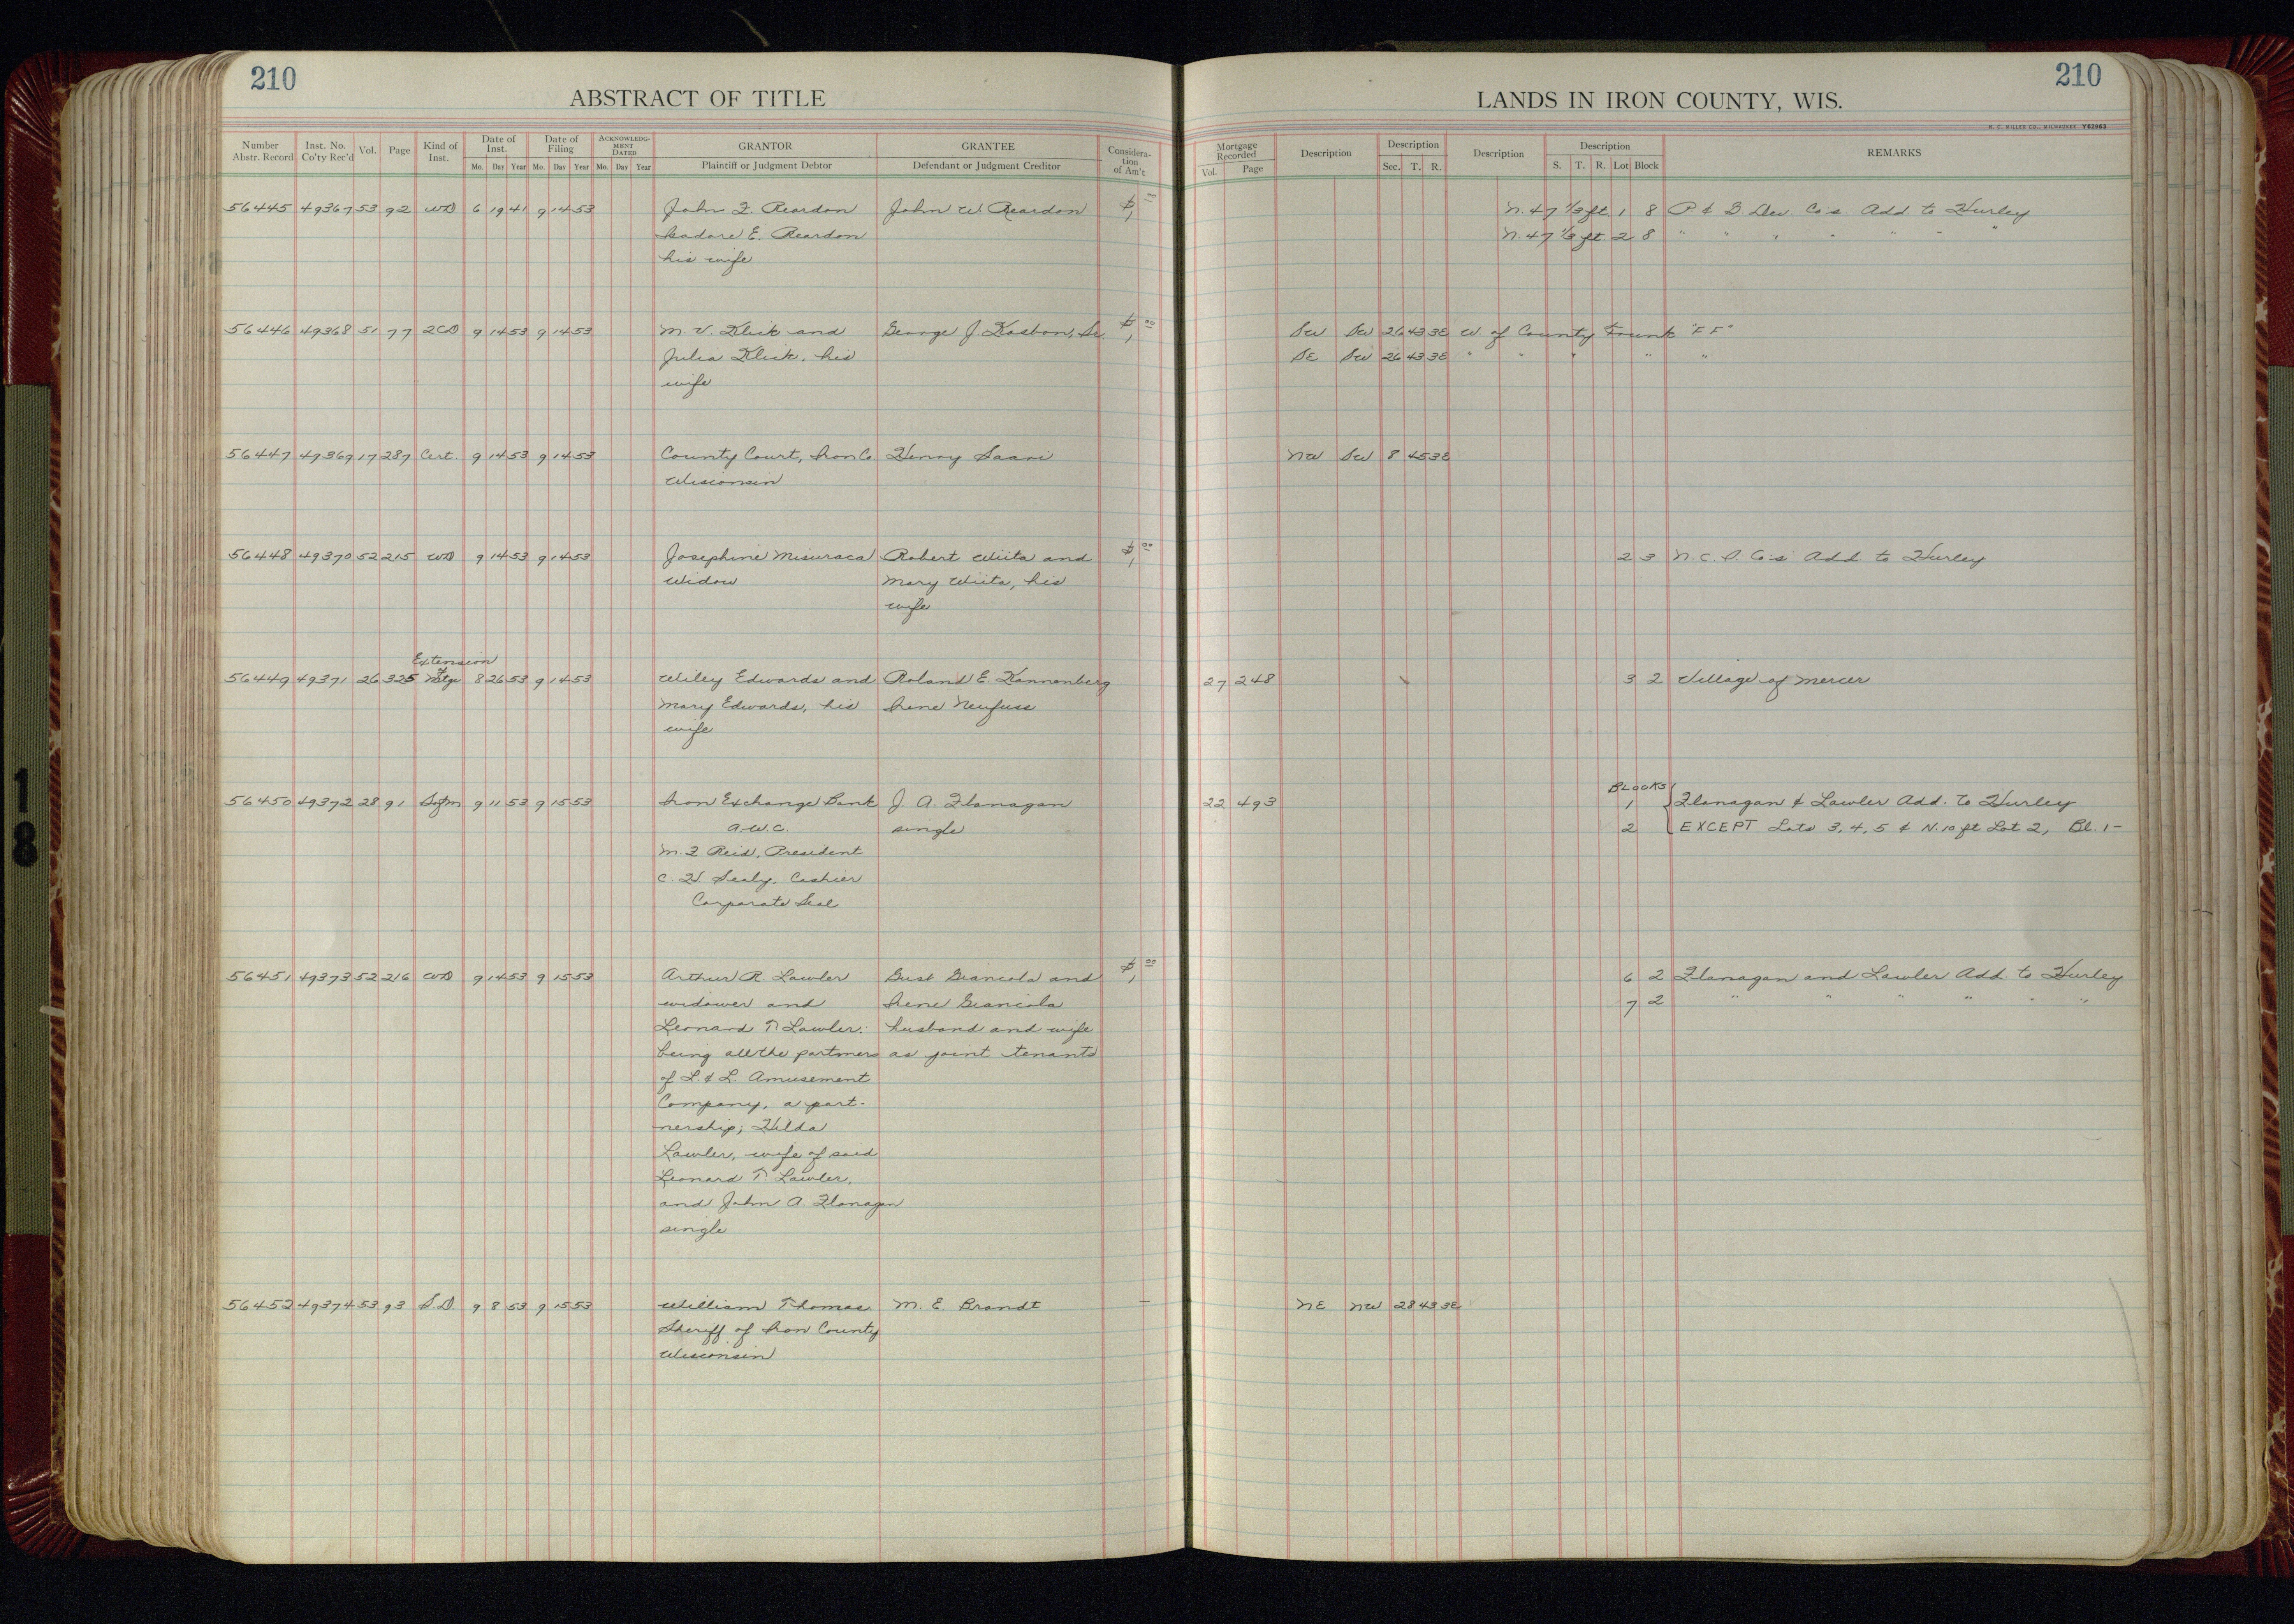 210
ABSTRACT OF TITLE
Number Abstr. Record Inst. No. Co'ty Rec'd Vol. Page Kind of Inst. Date of Inst. Date of Filing ACKNOWLEDGMENT DATED GRANTOR GRANTEE Consideration of Am't
Mo. Day Year Mo. Day Year Mo. Day Year Plaintiff or Judgment Debtor Defendant or Judgment Creditor
56445 49367 53 92 WD 6 19 41 9 14 53 John F. Reardon John W. Reardon $1
Isadore E. Reardon
his wife
56446 49368 51 77 2CD 9 14 53 9 14 53 M. V. Klick and George J. Kasbon, Sr. $1 00
Julia Klick, his
wife
56447 49369 17 287 Cert. 9 14 53 9 14 53 County Court, Iron Co. Henry Saari
Wisconsin
56448 49370 52 215 WD 9 14 53 9 14 53 Josephine Misuraca Robert Wiita and $1 00
Widow Mary Wiita, his
wife
Extension
56449 49371 26 325 of Mtge 8 26 53 9 14 53 Wiley Edwards and Roland E. Kannenberg
Mary Edwards, his Irene Neufuss
wife
56450 49372 28 91 Satm 9 11 53 9 15 53 Iron Exchange Bank J. A. Flanagan
A.W.C. single
M. F. Reid, President
C. H. Sealy, Cashier
Corporate Seal
56451 49373 52 216 WD 9 14 53 9 15 53 Arthur R. Lawler Gust Giancola and $1 00
widower and Irene Giancola
Leonard T. Lawler: husband and wife
being all the partners as joint tenants
of L. & L. Amusement
Company, a part-
nership; Hilda
Lawler, wife of said
Leonard T. Lawler,
and John A. Flanagan
single
56452 49374 53 93 S.D. 9 8 53 9 15 53 William Thomas M. E. Brandt —
Sheriff of Iron County
Wisconsin
210
LANDS IN IRON COUNTY, WIS.
H. C. MILLER CO., MILWAUKEE Y62963
Mortgage Recorded Description Description Description Description REMARKS
Vol. Page Sec. T. R. S. T. R. Lot Block
N. 47 1/3 ft. 1 8 P. & B Dev. Co's Add. to Hurley
N. 47 1/3 ft. 2 8 " " " " " " "
SW SW 26 43 3E W. of County Trunk "FF"
SE SW 26 43 3E " " " " "
NW SW 8 45 3E
2 3 N. C. I. Co's Add to Hurley
27 248 3 2 Village of Mercer
BLOCKS
22 493 1 Flanagan & Lawler Add. to Hurley
2 EXCEPT Lots 3, 4, 5 & N. 10 ft Lot 2, Bl. 1-
6 2 Flanagan and Lawler Add. to Hurley
7 2 " " " " " "
NE NW 28 43 3E
18